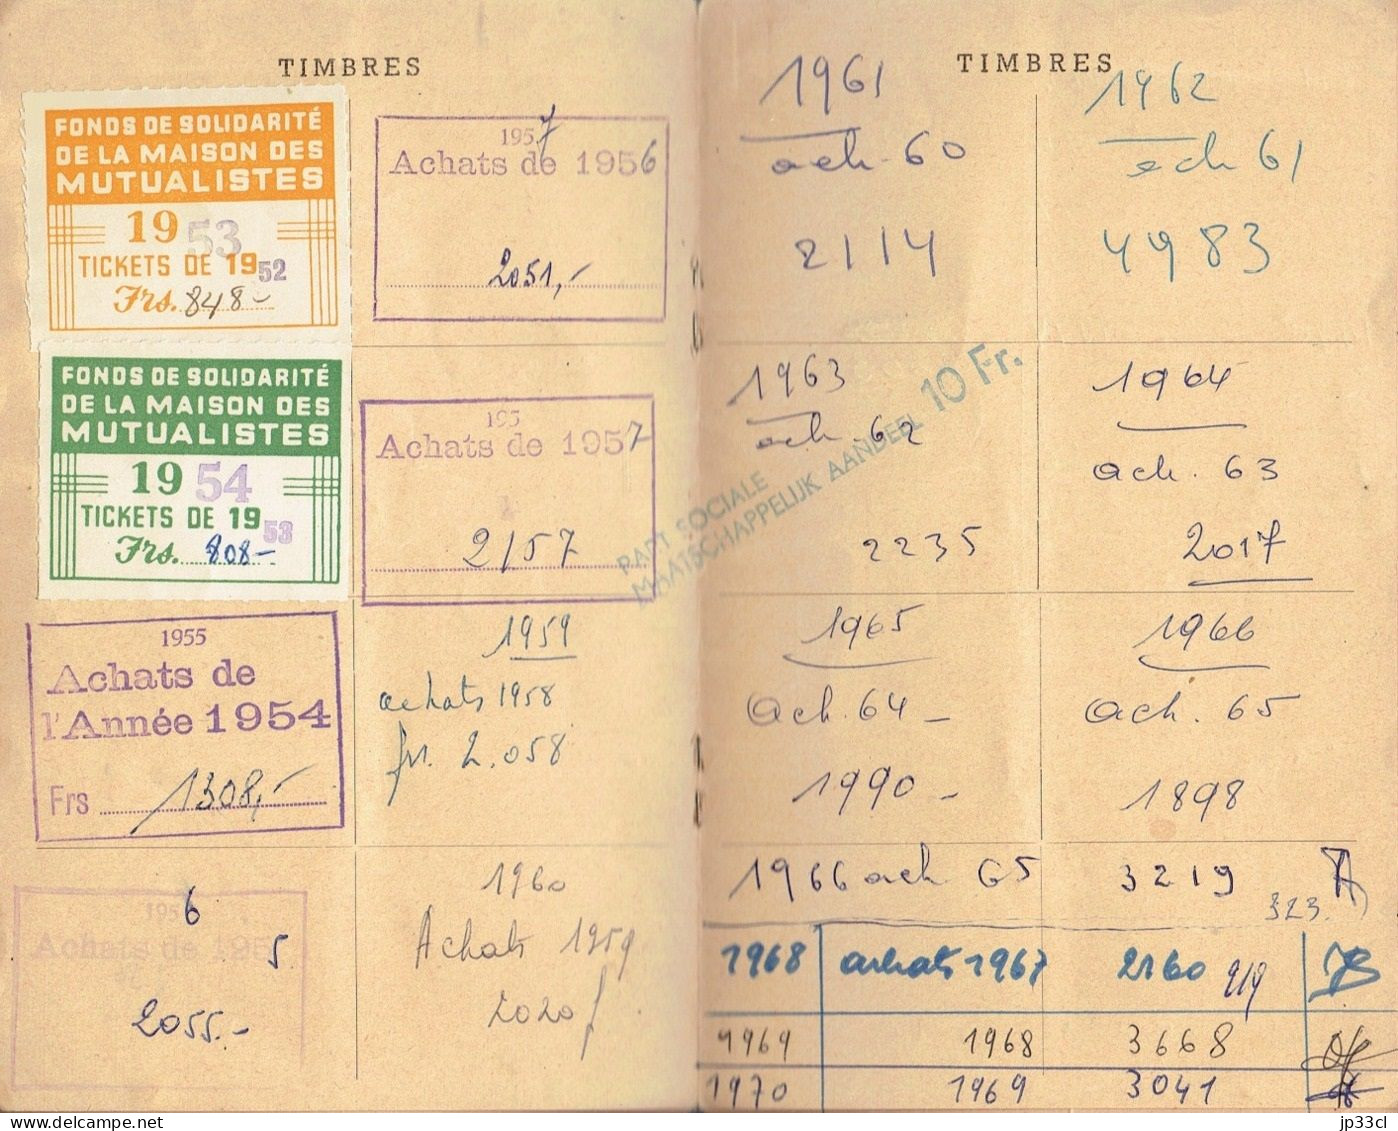 TIMBRES
FONDS DE SOLIDARITÉ
DE LA MAISON DES
MUTUALISTES
19 53
TICKETS DE 19 52
Frs. 848-
FONDS DE SOLIDARITÉ
DE LA MAISON DES
MUTUALISTES
19 54
TICKETS DE 19 53
Frs. 808-
1955
Achats de
l'Année 1954
Frs 1308,-
1956
Achats de 1955
2055.-
1957
Achats de 1956
2051,-
195
Achats de 1957
2157
1959
achats 1958
fr. 2.058
1960
Achats 1959
2020 f
PART SOCIALE
MAATSCHAPPELIJK AANDEEL 10 Fr.
TIMBRES
1961
ach. 60
2114
1962
ach 61
4983
1963
ach. 62
2235
1964
ach. 63
2017
1965
ach. 64-
1990-
1966
ach. 65
1898
1966 ach 65 3219 323.
1968 achats 1967 2160 919
1969 1968 3668
1970 1969 3041
delcampe.net
jp33cl